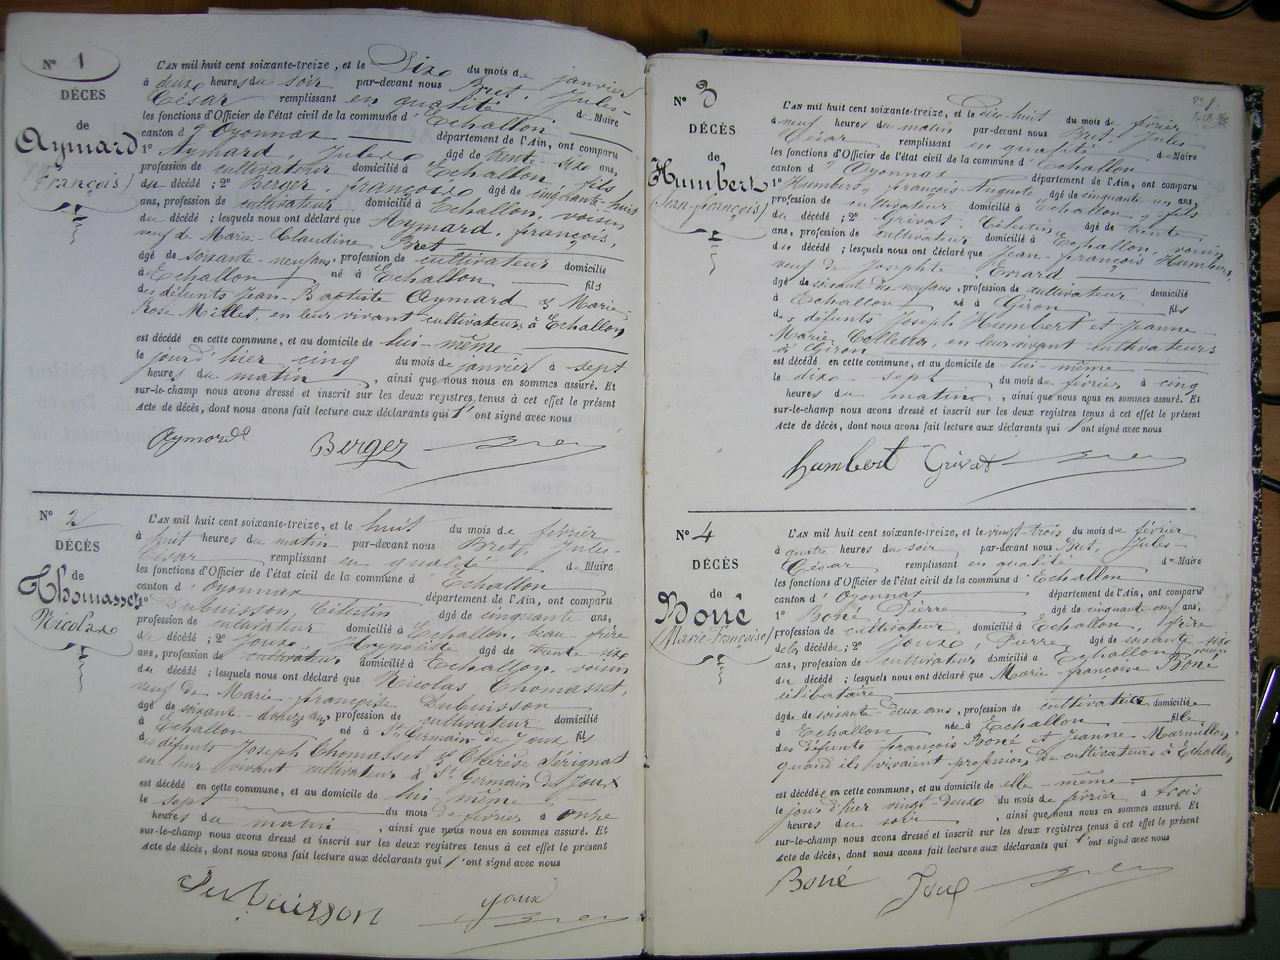 N° 1
DÉCES
de
Aymard
(François)
L'AN mil huit cent soixante-treize, et le Six du mois de janvier
à deux heures du soir par-devant nous Bret, Jules-
César remplissant en qualité de Maire
les fonctions d'Officier de l'état civil de la commune d'Echallon
canton d'Oyonnax département de l'Ain, ont comparu
1° Aymard, Jules âgé de trente-six ans,
profession de cultivateur domicilié à Echallon, fils
du décédé ; 2° Berger, françois âgé de cinquante-huit
ans, profession de cultivateur domicilié à Echallon, voisin
du décédé ; lesquels nous ont déclaré que Aymard, françois,
veuf de Marie-Claudine Bret
âgé de soixante-neuf ans, profession de cultivateur domicilié
à Echallon né à Echallon fils
des défunts Jean-Baptiste Aymard & Marie-
Rose Millet, en leur vivant cultivateurs à Echallon,
est décédé en cette commune, et au domicile de lui-même
le jour d'hier cinq du mois de janvier à sept
heures du matin, ainsi que nous nous en sommes assuré. Et
sur-le-champ nous avons dressé et inscrit sur les deux registres tenus à cet effet le présent
Acte de décès, dont nous avons fait lecture aux déclarants qui l'ont signé avec nous
Aymard Berger Bret
N° 2
DÉCÈS
de
Thomasset
Nicolas
L'AN mil huit cent soixante-treize, et le huit du mois de février
à huit heures du matin par-devant nous Bret, Jules-
César remplissant en qualité de Maire
les fonctions d'Officier de l'état civil de la commune d'Echallon
canton d'Oyonnax département de l'Ain, ont comparu
1° Dubuisson, Célestin âgé de cinquante ans,
profession de cultivateur domicilié à Echallon, beau-frère
du décédé ; 2° Joux, Hypolite âgé de trente-six
ans, profession de cultivateur domicilié à Echallon, voisin
du décédé ; lesquels nous ont déclaré que Nicolas Thomasset,
veuf de Marie-françoise Dubuisson
âgé de soixante-douze ans, profession de cultivateur domicilié
à Echallon né à St Germain de Joux fils
des défunts Joseph Thomasset & Thérèse Sérignat
en leur vivant cultivateurs à St Germain de Joux
est décédé en cette commune, et au domicile de lui-même
le sept du mois de février à onze
heures du matin, ainsi que nous nous en sommes assuré. Et
sur-le-champ nous avons dressé et inscrit sur les deux registres tenus à cet effet le présent
Acte de décès, dont nous avons fait lecture aux déclarants qui l'ont signé avec nous
Dubuisson Joux
Bret
N° 3
DÉCÈS
de
Humbert
(Jean-françois)
L'AN mil huit cent soixante-treize, et le dix-huit du mois de février
à neuf heures du matin par-devant nous Bret, Jules
César remplissant en qualité de Maire
les fonctions d'Officier de l'état civil de la commune d'Echallon
canton d'Oyonnax département de l'Ain, ont comparu
1° Humbert, françois Auguste âgé de cinquante un ans,
profession de cultivateur domicilié à Echallon, fils
du décédé ; 2° Grivat, Célestin âgé de trente
ans, profession de cultivateur domicilié à Echallon, voisin
du décédé ; lesquels nous ont déclaré que Jean-françois Humbert,
veuf de Josephte Evrard
âgé de soixante dix neuf ans, profession de cultivateur domicilié
à Echallon né à Giron fils
des défunts Joseph Humbert et Jeanne-
Marie Colletta, en leur vivant cultivateurs
à Giron
est décédé en cette commune, et au domicile de lui-même
le dix-sept du mois de février à cinq
heures du matin, ainsi que nous nous en sommes assuré. Et
sur-le-champ nous avons dressé et inscrit sur les deux registres tenus à cet effet le présent
Acte de décès, dont nous avons fait lecture aux déclarants qui l'ont signé avec nous
humbert Grivat Bret
N° 4
DÉCÈS
de
Boné
(Marie françoise)
L'AN mil huit cent soixante-treize, et le vingt-trois du mois de février
à quatre heures du soir, par-devant nous Bret, Jules-
César remplissant en qualité de Maire
les fonctions d'Officier de l'état civil de la commune d'Echallon
canton d'Oyonnax département de l'Ain, ont comparu
1° Boné, Pierre âgé de cinquante neuf ans,
profession de cultivateur domicilié à Echallon, frère
de la décédée ; 2° Joux, Pierre, âgé de soixante-six
ans, profession de cultivateur domicilié à Echallon voisin
du décédé ; lesquels nous ont déclaré que Marie-françoise Boné
célibataire
âgée de soixante-deux ans, profession de cultivatrice domicilié
à Echallon née à Echallon fille
des défunts françois Boné et Jeanne-Marmillon,
quand ils vivaient profession de cultivateurs à Echallon,
est décédée en cette commune, et au domicile de elle-même
le jour d'hier vingt-deux du mois de février à trois
heures du soir, ainsi que nous nous en sommes assuré. Et
sur-le-champ nous avons dressé et inscrit sur les deux registres tenus à cet effet le présent
Acte de décès, dont nous avons fait lecture aux déclarants qui l'ont signé avec nous
Boné Joux Bret